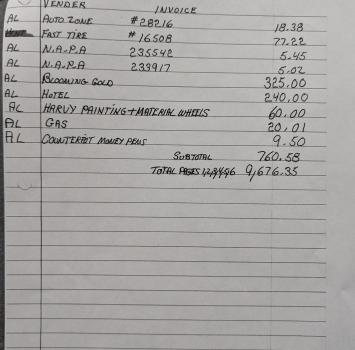 VENDER INVOICE
AL AUTO ZONE #28216 18.38
FAST TIRE #16508 77.22
AL N.A.P.A 235542 5.45
AL N.A.P.A 233917 5.02
AL BLOOMING GOLD 325.00
AL HOTEL 240.00
AL HARVY PAINTING + MATERIAL WHEELS 60.00
AL GAS 20.01
AL COUNTERFIT MONEY PENS 9.50
SUBTOTAL 760.58
TOTAL PAGES 9,676.35